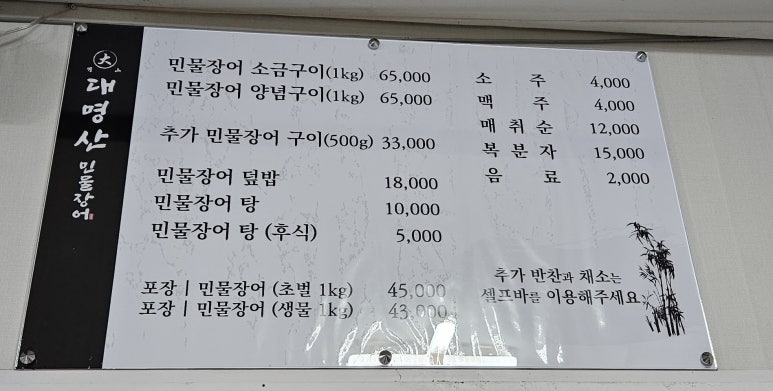 大
대명산 민물장어
민물장어 소금구이(1kg) 65,000
민물장어 양념구이(1kg) 65,000
추가 민물장어 구이(500g) 33,000
민물장어 덮밥 18,000
민물장어 탕 10,000
민물장어 탕 (후식) 5,000
포장 | 민물장어 (초벌 1kg) 45,000
포장 | 민물장어 (생물 1kg) 43,000
소 주 4,000
맥 주 4,000
매 취 순 12,000
복 분 자 15,000
음 료 2,000
추가 반찬과 채소는
셀프바를 이용해주세요.